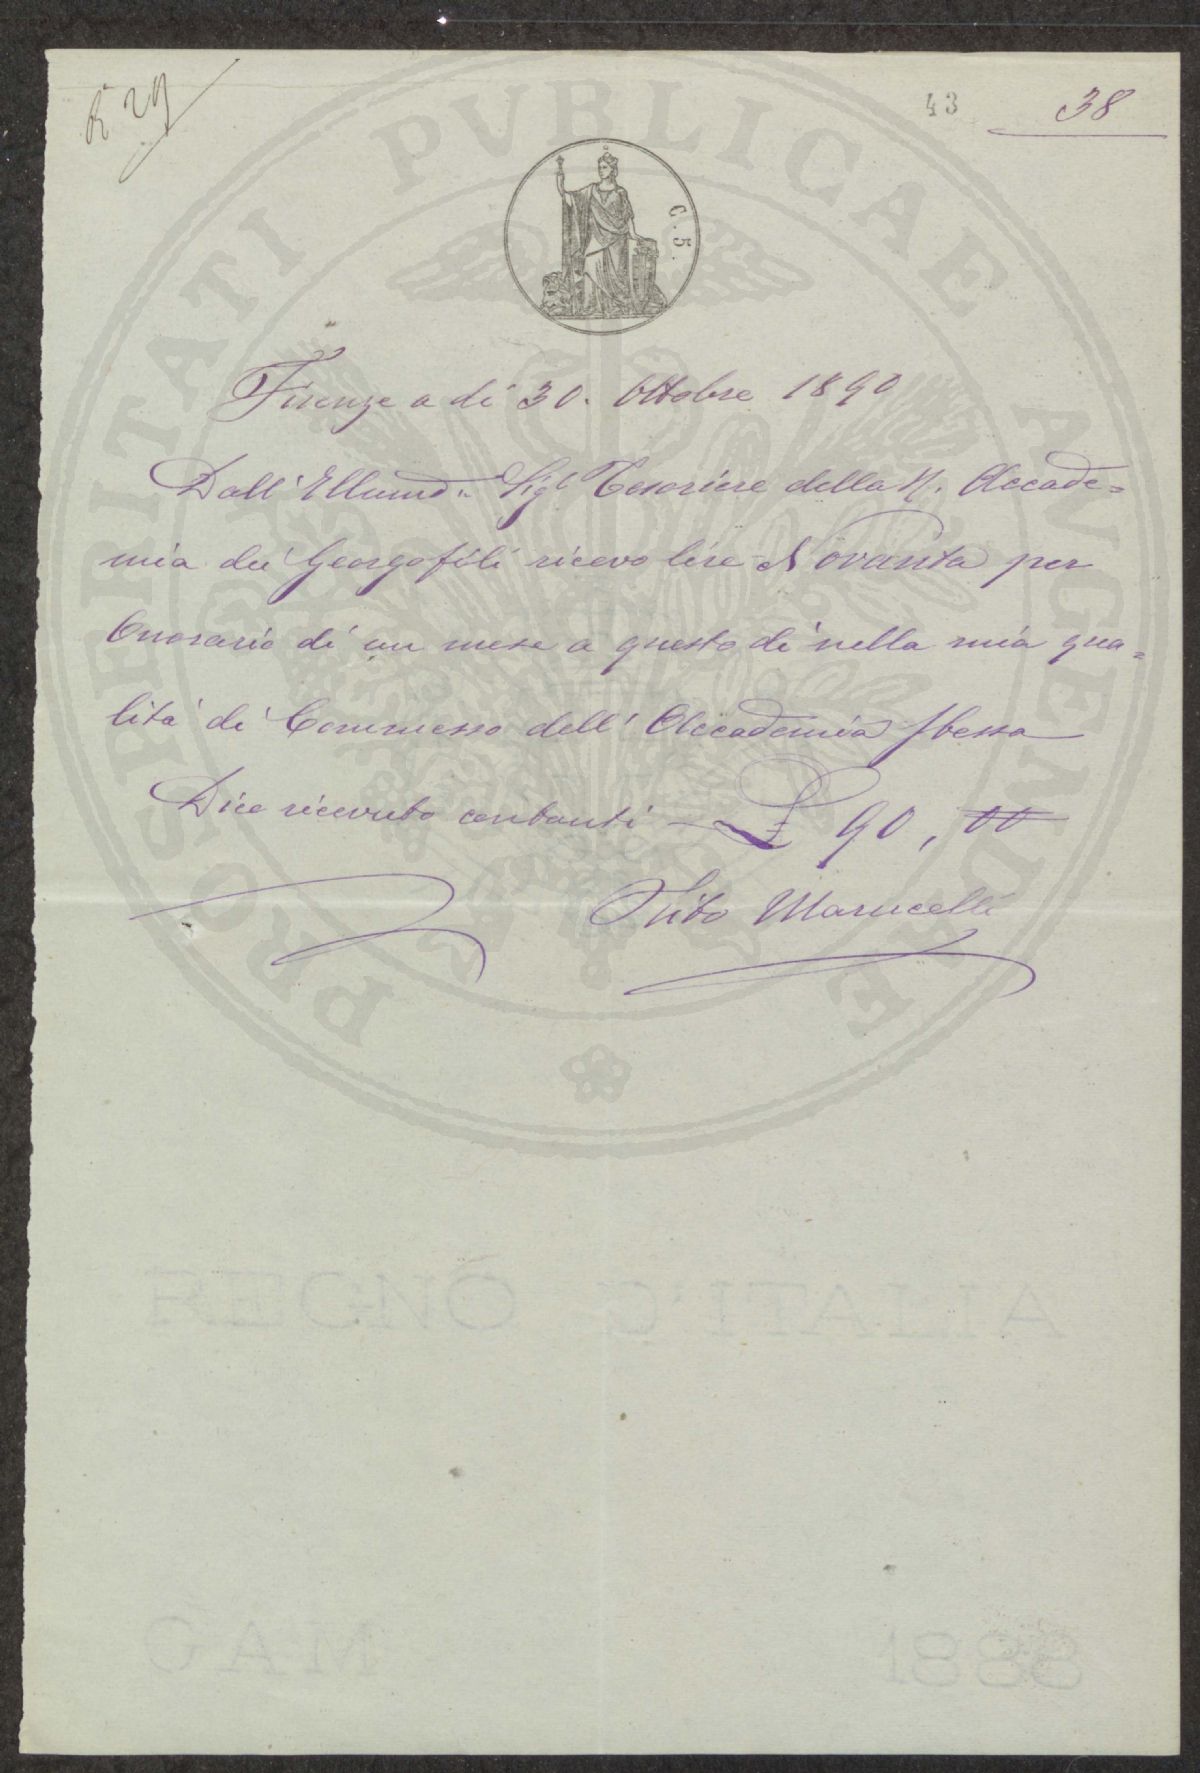 R 29
43
38
C. 5.
Firenze a dì 30. Ottobre 1890
Dall' Illumo. Sigr Tesoriere della R. Accade=
mia dei Georgofili ricevo lire Novanta per
Onorario di un mese a questo dì nella mia qua=
lità di Commesso dell' Accademia stessa
Dico ricevuto contanti £ 90, 00
Tito Marucelli
PROSPERITATI PVBLICAE AVGENDAE
REGNO D'ITALIA
GAM 1888